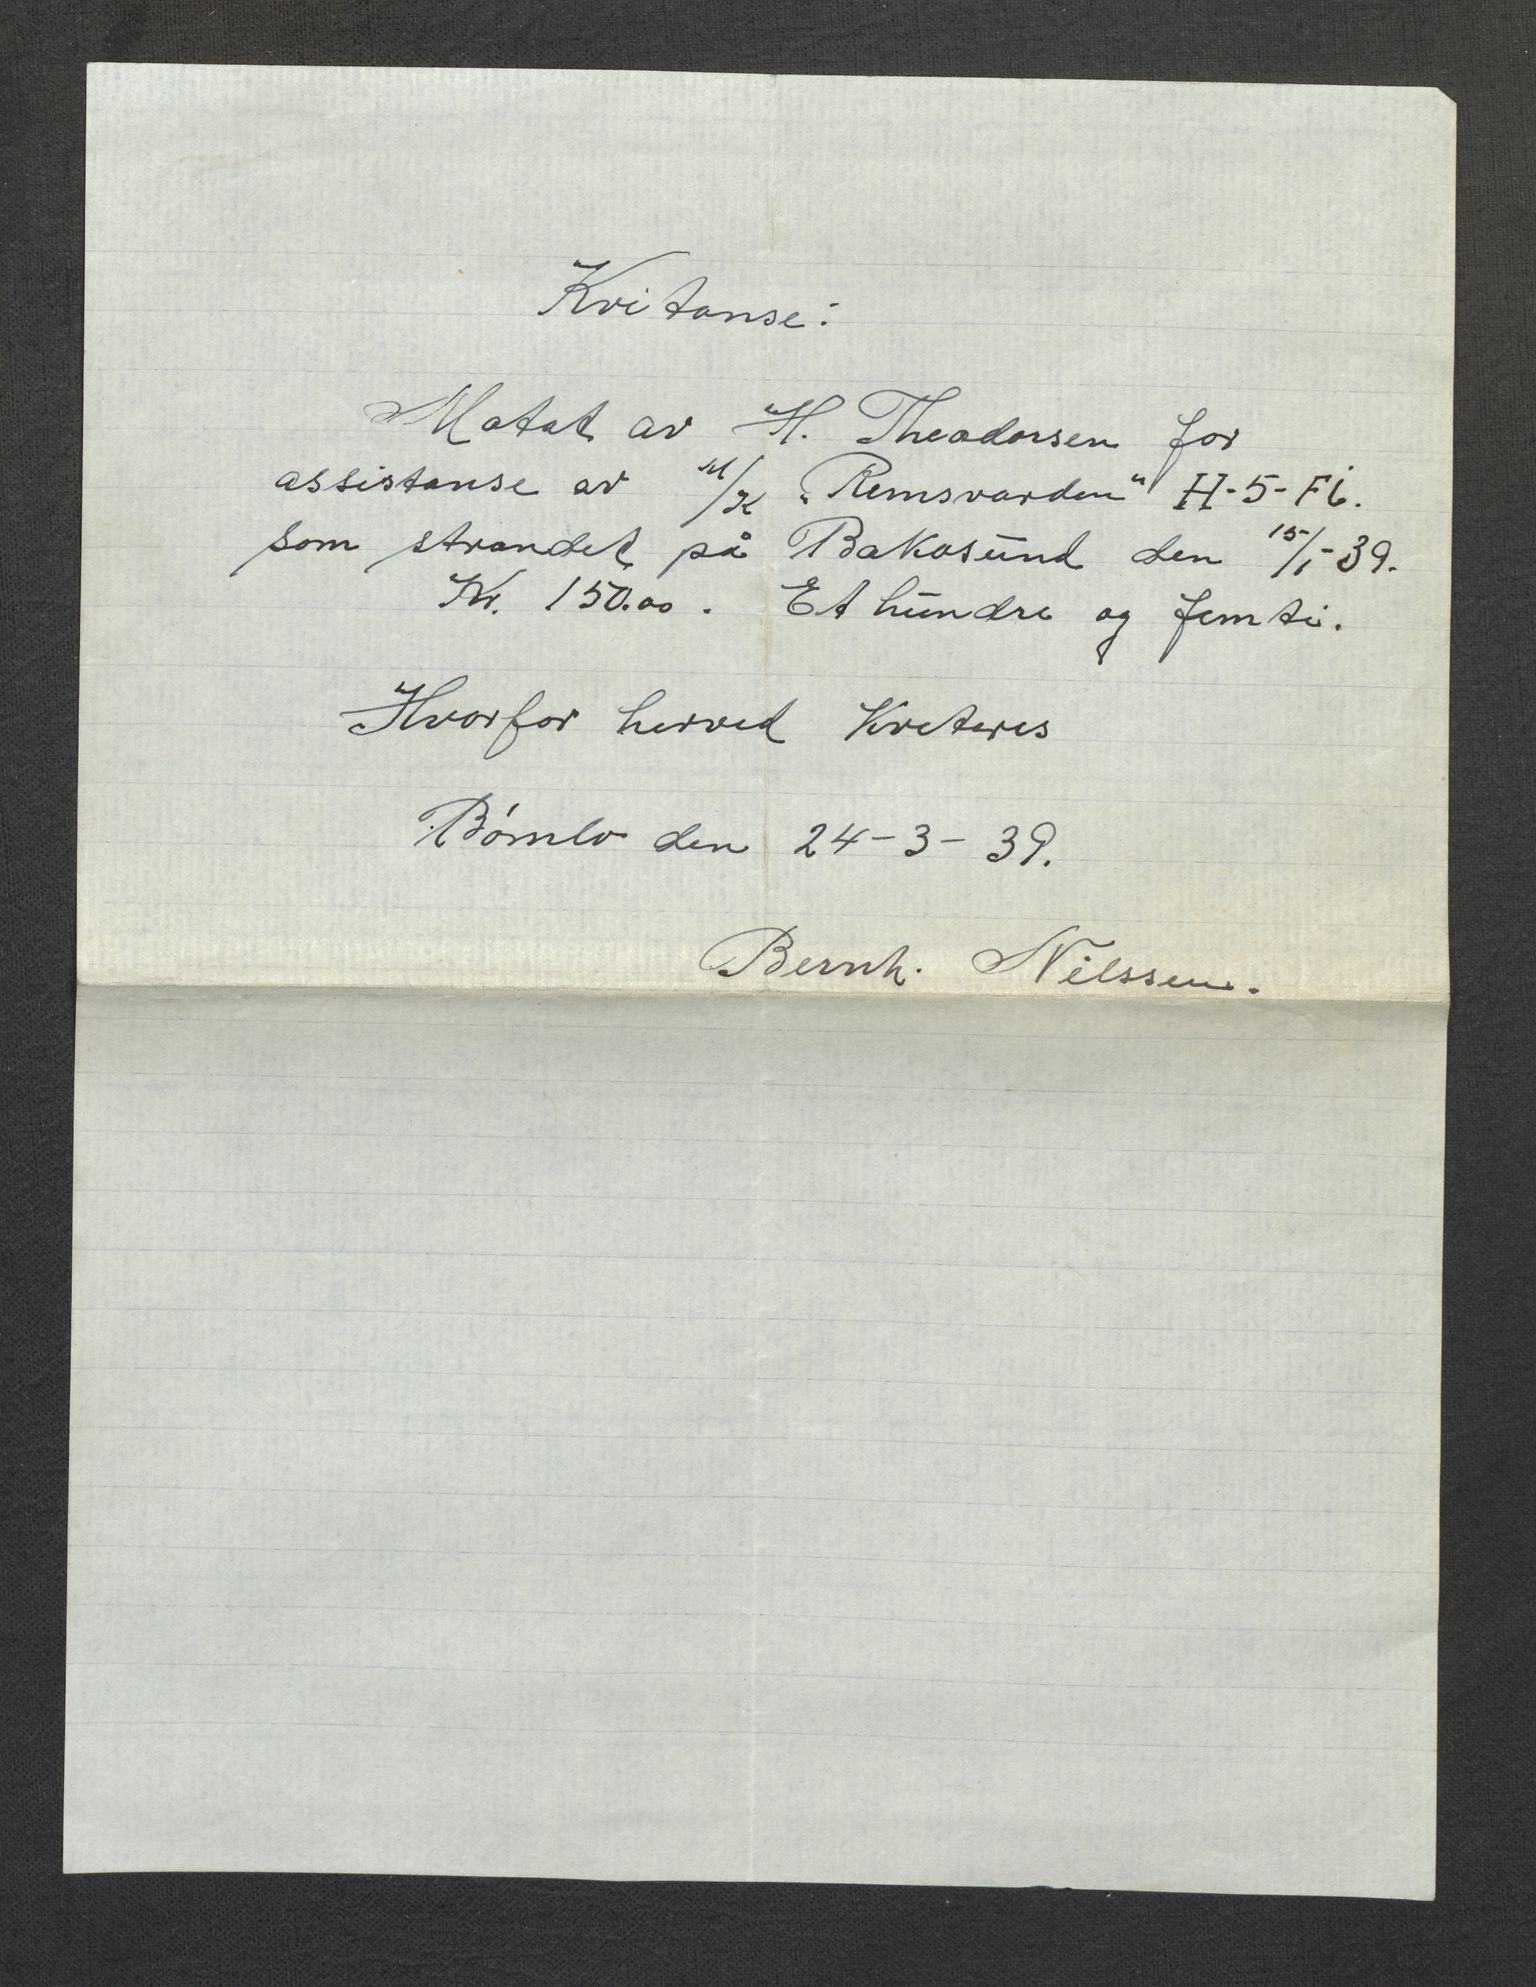 Kvitanse:
Motat av H. Theodorsen for
assistanse av M/K "Remsvarden" H-5-Fi.
som strandet på Bakasund den 15/1-39.
Kr. 150.00. Et hundre og femti.
Hvorfor herved Kviteres
Bømlo den 24-3-39.
Bernh. Nilssen.